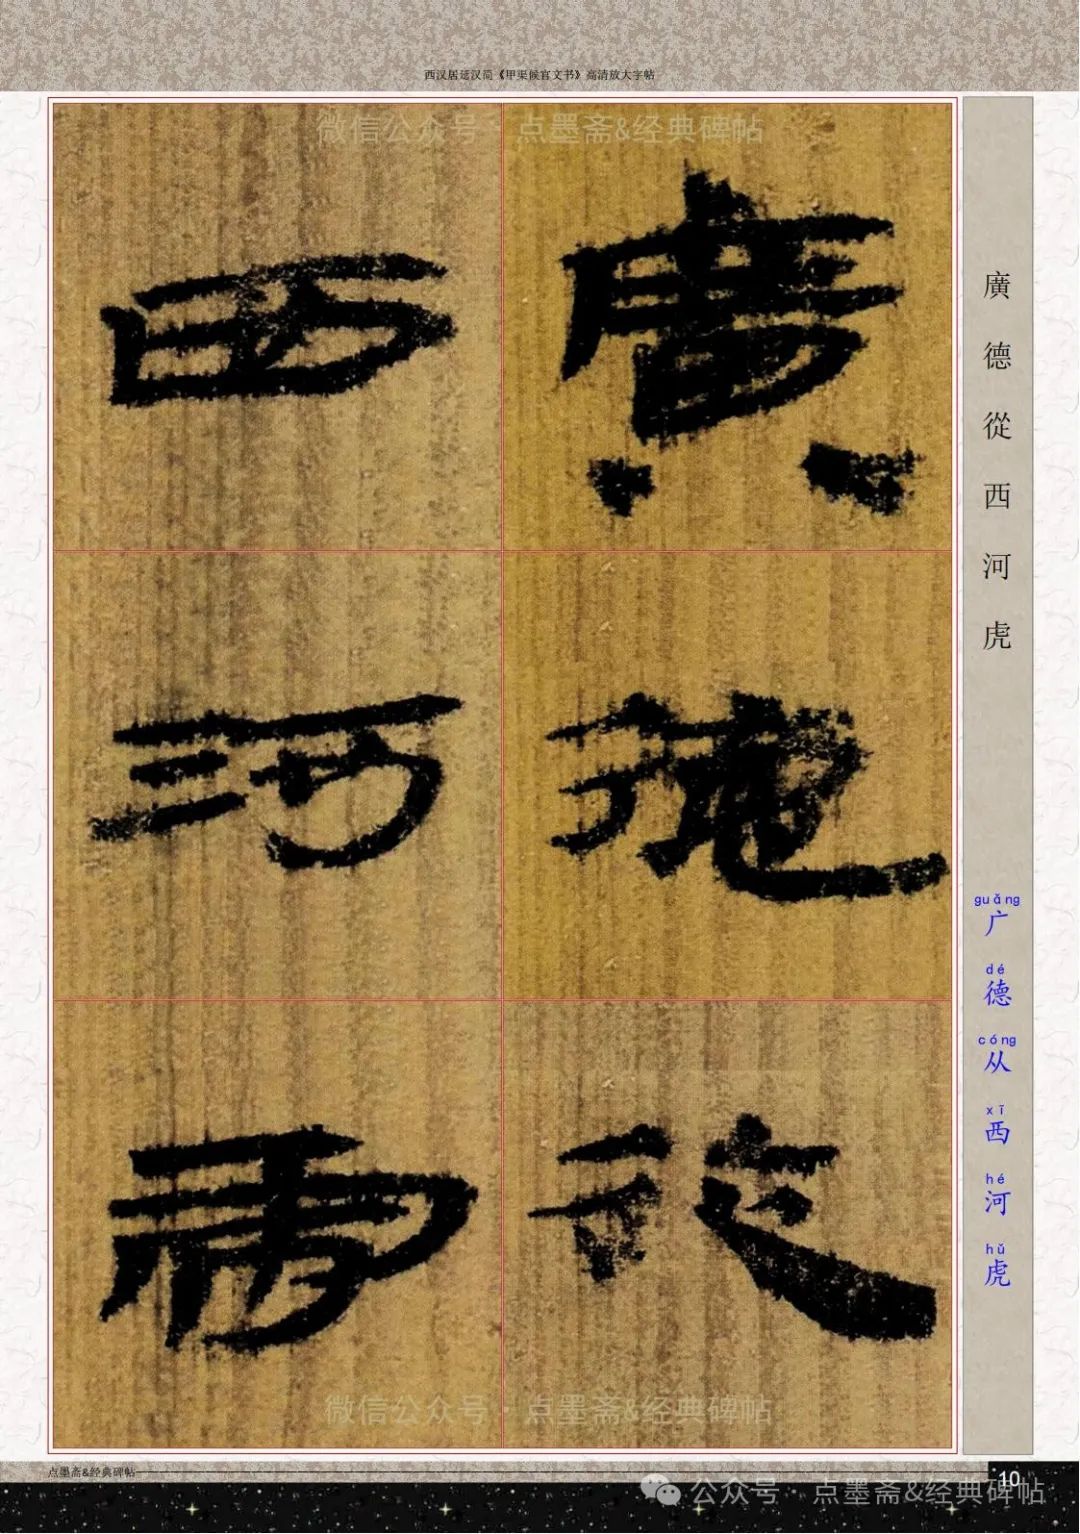 西汉居延汉简《甲渠候官文书》高清放大字帖
微信公众号·点墨斋&经典碑帖
廣
德
從
西
河
虎
廣德從西河虎
guǎng dé cóng xī hé hǔ
广德从西河虎
微信公众号·点墨斋&经典碑帖
点墨斋&经典碑帖
10
公众号·点墨斋&经典碑帖